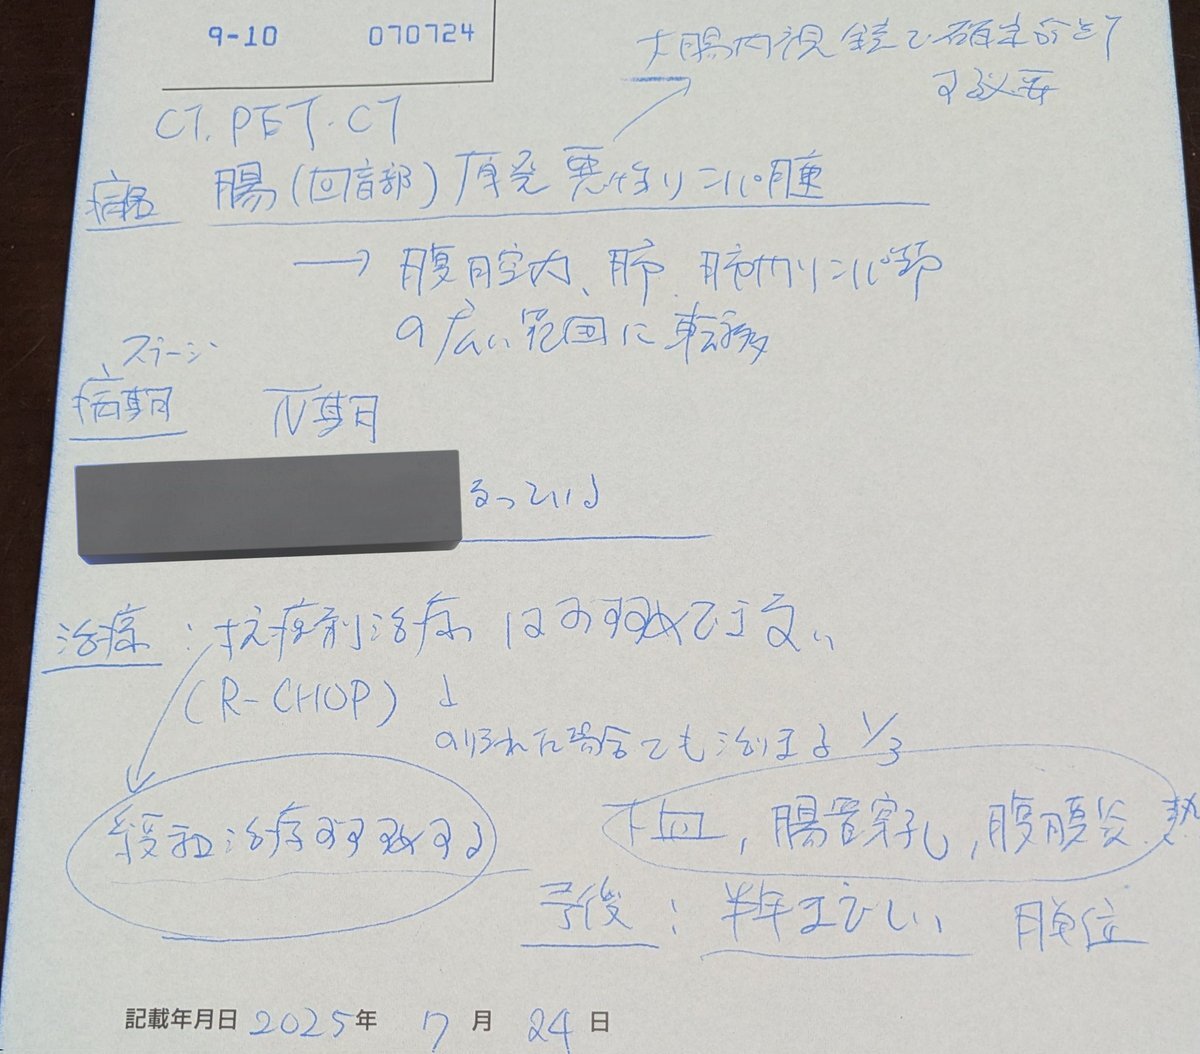 9-10 070724
大腸内視鏡で確定診断
する必要
CT, PET-CT
病名 腸(回盲部)原発悪性リンパ腫
→ 腹腔内、肺、肺門リンパ節
の広い範囲に転移
ステージ
病期 Ⅳ期
っている
治療:抗癌剤治療はおすすめできない
(R-CHOP) ↓
のりきれた場合でも治まる 1/3
緩和治療おすすめする
下血,腸管穿孔,腹膜炎 熱
予後:半年はむずかしい 月単位
記載年月日 2025年 7月 24日